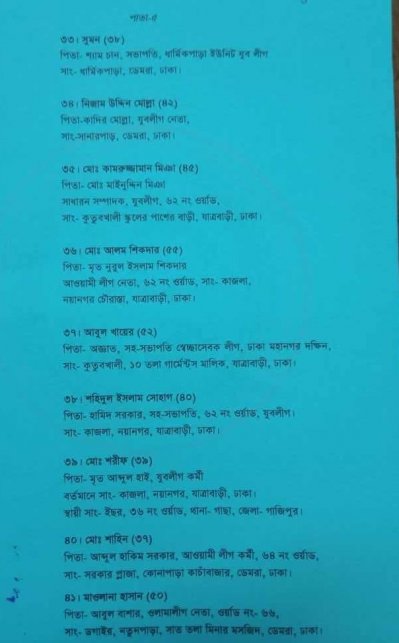 পাতা-৫
৩৩। সুমন (৩৮)
পিতা- শ্যাম চান, সভাপতি, ধার্মিকপাড়া ইউনিট যুব লীগ
সাং- ধার্মিকপাড়া, ডেমরা, ঢাকা।
৩৪। নিজাম উদ্দিন মোল্লা (৪২)
পিতা-কাদির মোল্লা, যুবলীগ নেতা,
সাং-সানারপাড়, ডেমরা, ঢাকা।
৩৫। মোঃ কামরুজ্জামান মিঞা (৪৫)
পিতা- মোঃ মাইনুদ্দিন মিঞা
সাধারন সম্পাদক, যুবলীগ, ৬২ নং ওর্য়াড,
সাং- কুতুবখালী স্কুলের পাশের বাড়ী, যাত্রাবাড়ী, ঢাকা।
৩৬। মোঃ আলম শিকদার (৫৫)
পিতা- মৃত নুরুল ইসলাম শিকদার
আওয়ামী লীগ নেতা, ৬২ নং ওর্য়াড, সাং- কাজলা,
নয়ানগর চৌরাস্তা, যাত্রাবাড়ী, ঢাকা।
৩৭। আবুল খায়ের (৫২)
পিতা- অজ্ঞাত, সহ-সভাপতি স্বেচ্ছাসেবক লীগ, ঢাকা মহানগর দক্ষিন,
সাং- কুতুবখালী, ১০ তলা গার্মেন্টস মালিক, যাত্রাবাড়ী, ঢাকা।
৩৮। শহিদুল ইসলাম সোহাগ (৪০)
পিতা- হামিদ সরকার, সহ-সভাপতি, ৬২ নং ওর্য়াড, যুবলীগ।
সাং- কাজলা, নয়ানগর, যাত্রাবাড়ী, ঢাকা।
৩৯। মোঃ শরীফ (৩৯)
পিতা- মৃত আব্দুল হাই, যুবলীগ কর্মী
বর্তমানে সাং- কাজলা, নয়ানগর, যাত্রাবাড়ী, ঢাকা।
স্থায়ী সাং- ইছর, ৩৬ নং ওর্য়াড, থানা- গাছা, জেলা- গাজিপুর।
৪০। মোঃ শাহিন (৩৭)
পিতা- আব্দুল হাকিম সরকার, আওয়ামী লীগ কর্মী, ৬৪ নং ওর্য়াড,
সাং- সরকার প্লাজা, কোনাপাড়া কাচাঁবাজার, ডেমরা, ঢাকা।
৪১। মাওলানা হাসান (৫০)
পিতা- আবুল বাশার, ওলামালীগ নেতা, ওয়ার্ড নং- ৬৬,
সাং- ডগাইর, নতুনপাড়া, সাত তলা মিনার মসজিদ, ডেমরা, ঢাকা।